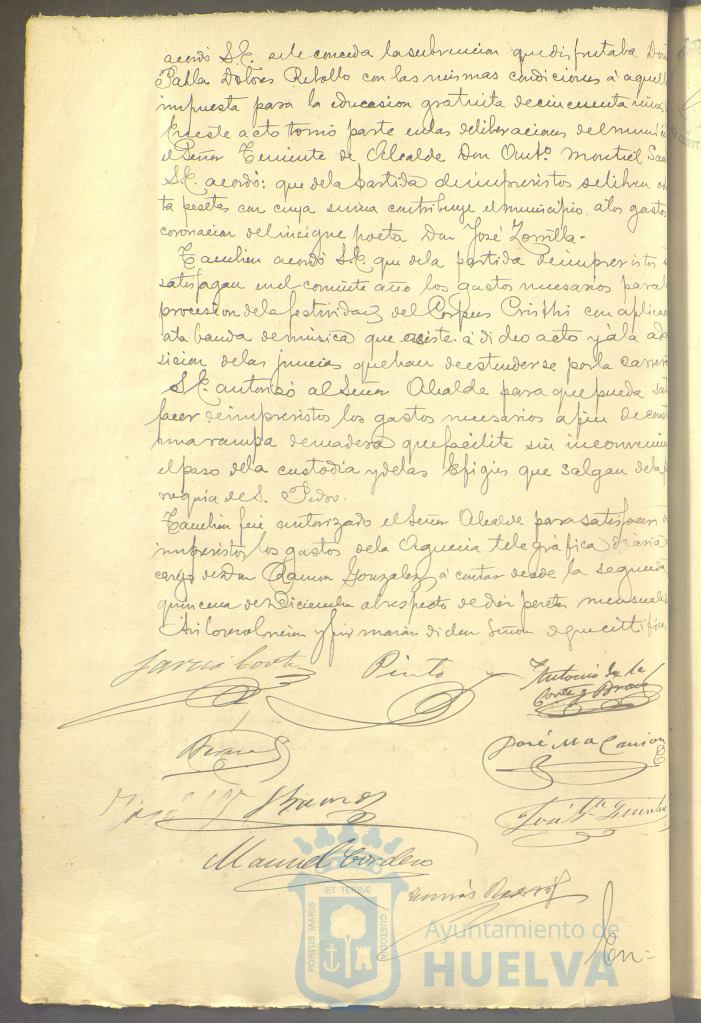 acordó S.E. se le conceda la subvencion que disfrutaba Don
Pabla Dolores Rebollo con las mismas condiciones á aquell
impuesta para la educasion gratuita de cincuenta niñ
En este acto tomó parte en las deliberaciones del munici
el Señor Teniente de Alcalde Don Antº. Montiel
S.E. acordó: que de la partida de imprevistos se libren
ta pesetas con cuya suma contribuye el municipio a los gastos
coronacion del insigne poeta Don José Zorrilla.
Tambien acordó S.E. que de la partida de imprevistos s
satisfagan en el corriente año los gastos necesarios para l
procesion de la festividad del Corpus Cristhi con aplicac
a la banda de música que asiste á dicho acto y á la ad
sicion de las juncias que han de estenderse por la carrer
S.E. autorizó al Señor Alcalde para que pueda sat
facer de imprevistos los gastos necesarios a fin de const
una rampa de madera que facilite sin inconvenien
el paso de la custodia y de las Efigies que salgan de la
roquia de S. Pedro.
Tambien fué autorizado el Señor Alcalde para satisfacer
imprevistos los gastos de la Agencia telegráfica diaria
cargo de Don Ramon Gonzalez, á contar desde la segunda
quincena de Diciembre al respecto de diez pesetas mensuales
Asi lo resolvieron y firmarán dichos Señores de que certifico
Garcia Cortes Pinto Antonio de la
Corte y Bravo
José Mª
José
Manuel Cordero
Tomás
ET TERRÆ
PORTUS MARIS
CUSTODIA
Ayuntamiento de
HUELVA